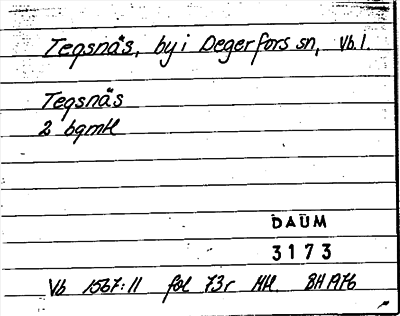 Tegsnäs, by i Degerfors sn, Vb. l.
Tegsnäs
2 bgmH
DAUM
3173
Vb 1567:11 fol 73r HH BH 1976